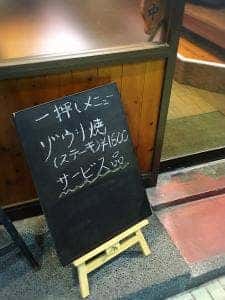 一押しメニュー
ゾウリ焼
(ステーキ)¥1500
サービス品